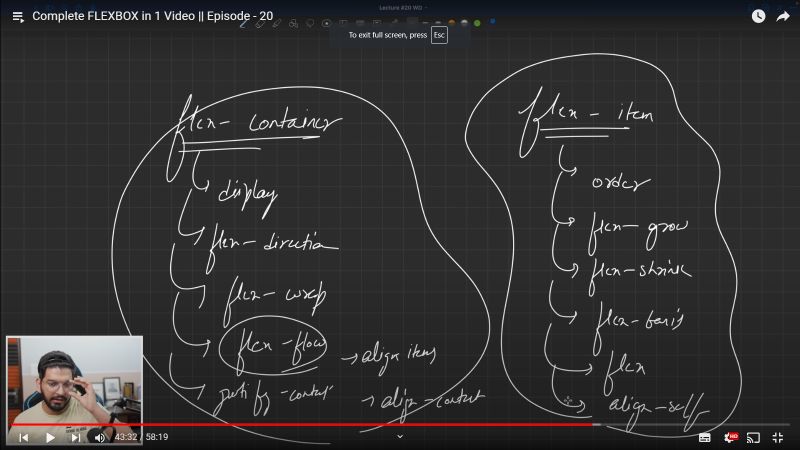 Lecture #20 WD
Complete FLEXBOX in 1 Video || Episode - 20
To exit full screen, press Esc
flex - container
display
flex - direction
flex - wrap
flex - flow
justify - content
align items
align - content
flex - item
order
flex - grow
flex - shrink
flex - basis
flex
align - self
43:32 / 58:19
HD